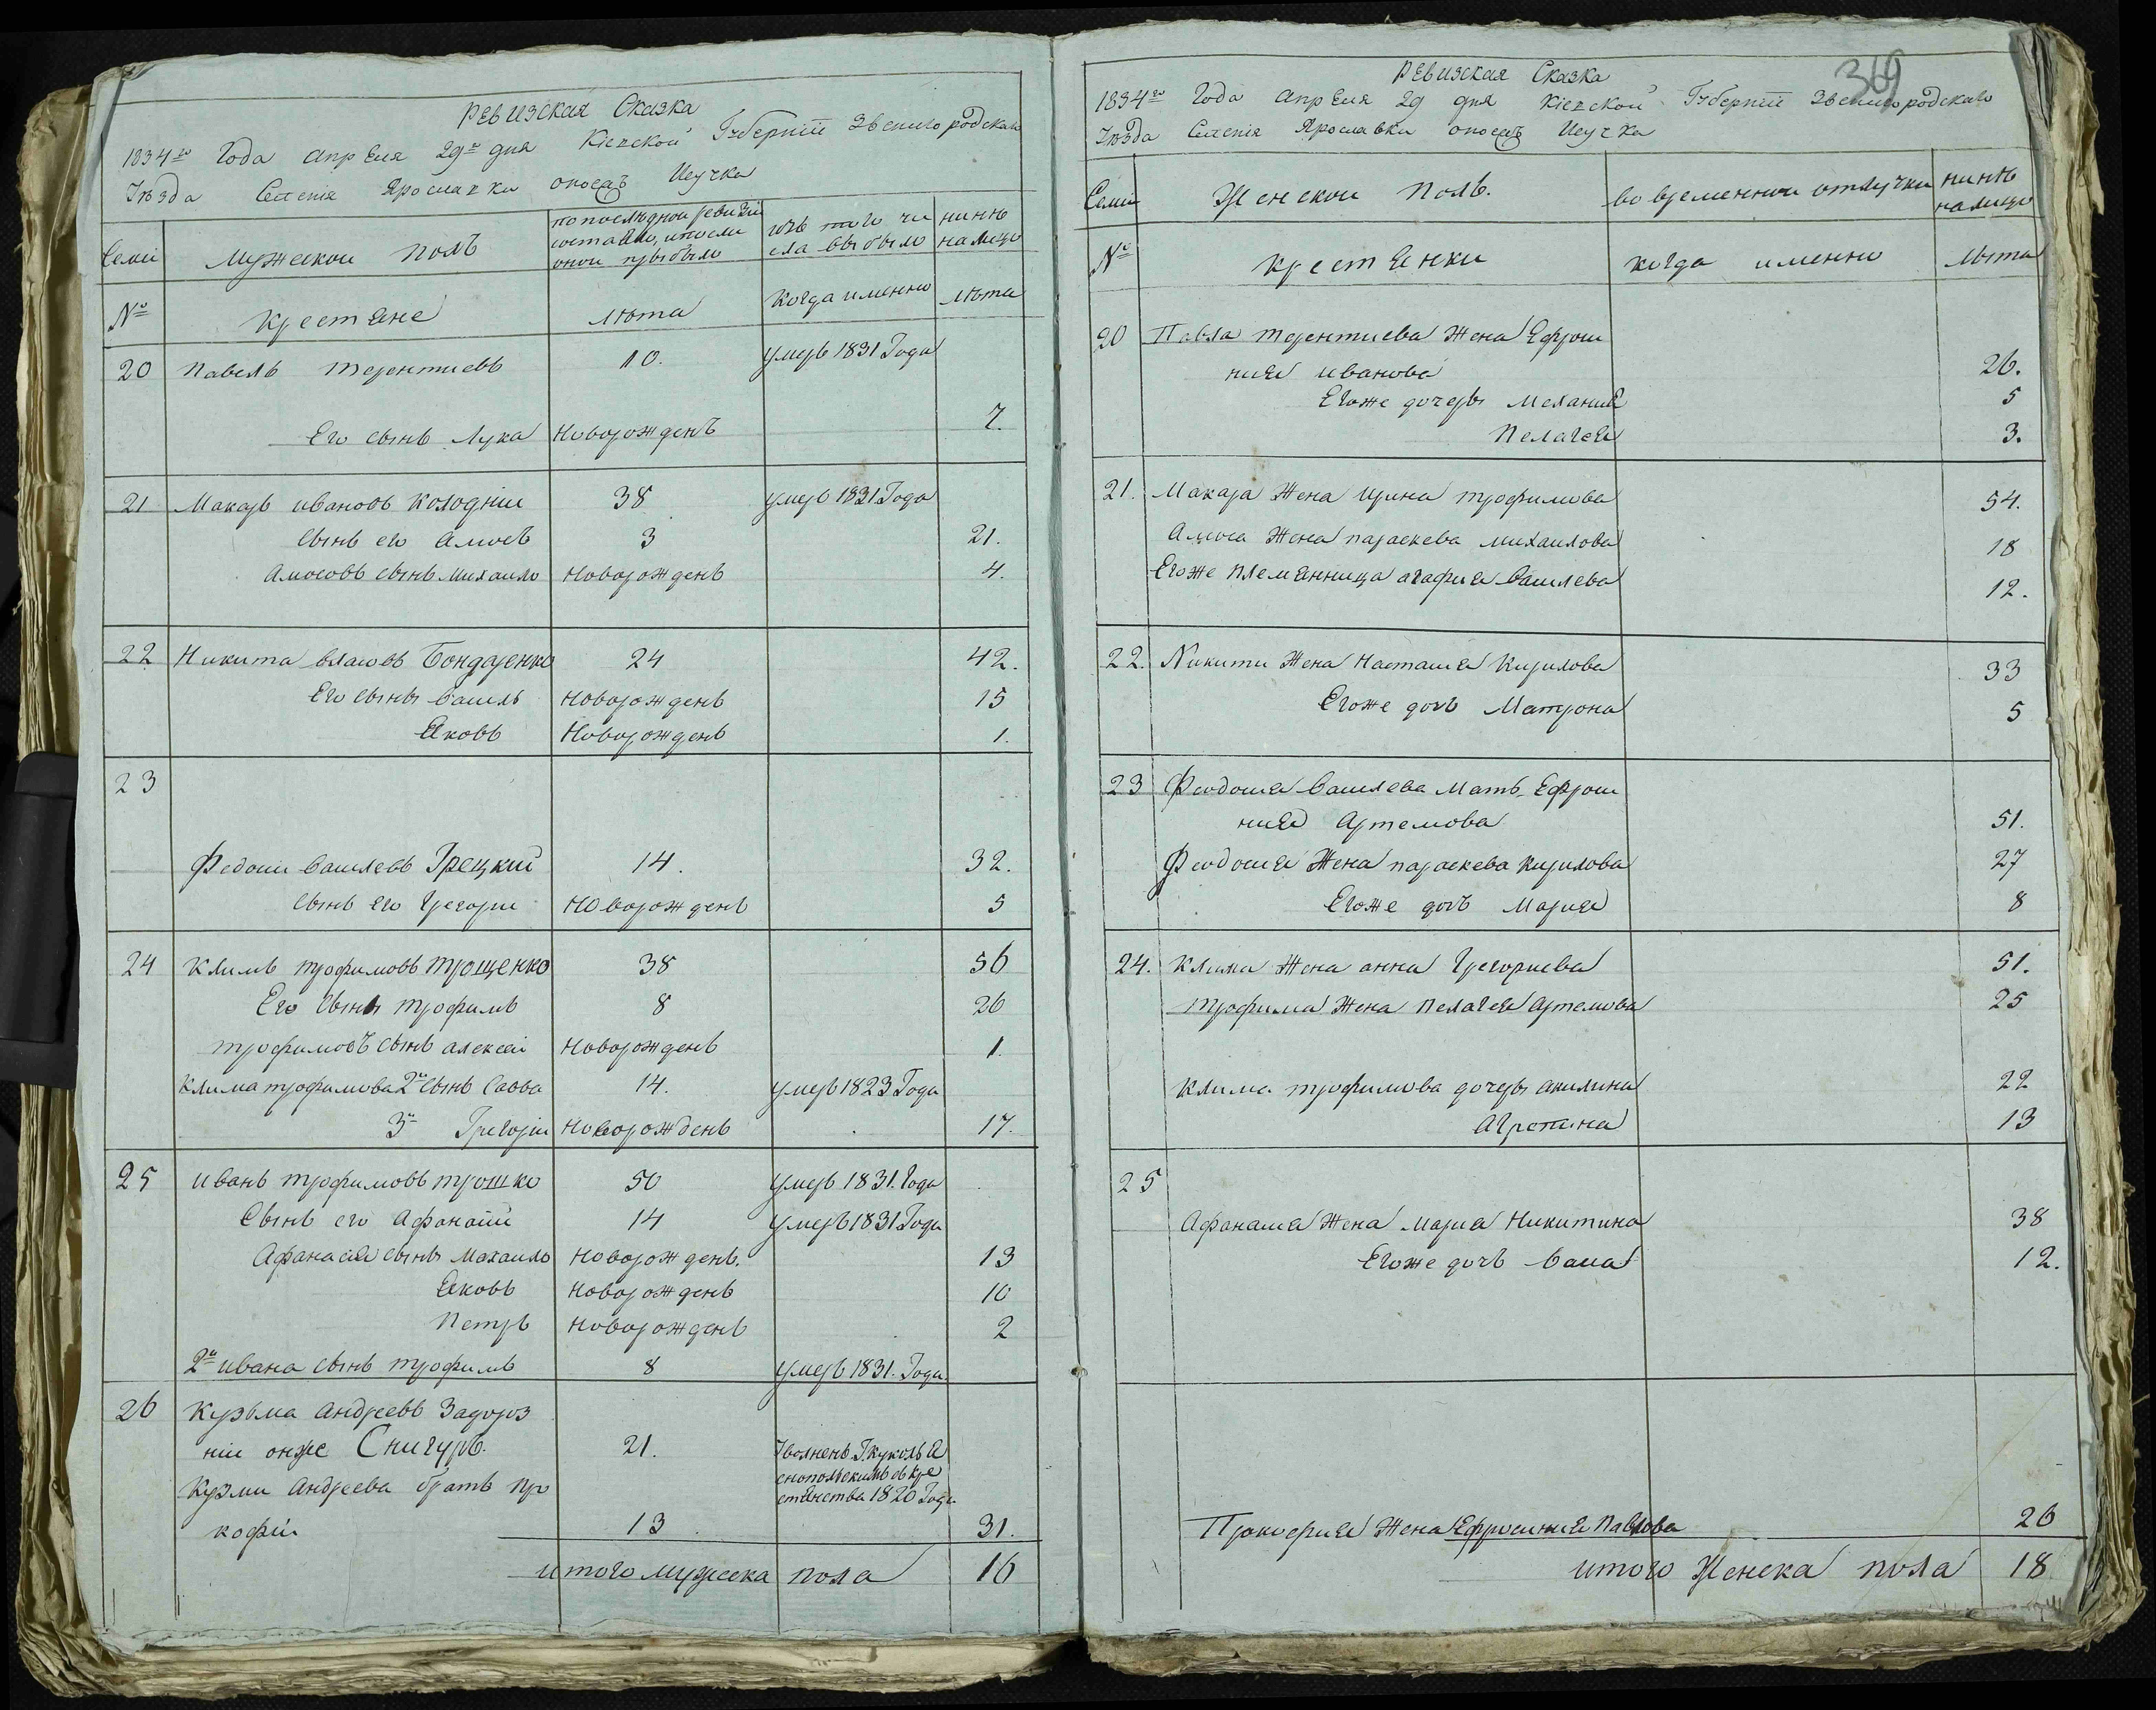 Ревизская Сказка
1834го Года апреля 29го дня Кіевской Губерніи Звенигородскаго
Уѣзда Селенія Ярославки
Семіи
Мужескои полъ
по послѣднои ревизіи
состаяло, и после
онои прыбыло
изъ того чи
сла выбыло
нинѣ
налицо
№
крестяне
лѣта
Когда именно
лѣта
20 Павелъ терентиевъ 10. умеръ 1831 Года
Его сынъ Лука Новорожденъ 7.
21 Макаръ ивановъ Колодніи 38 умеръ 1831 Года
Сынъ его Амосъ 3 21.
Амосовъ сынъ Михаило Новорожденъ 4.
22 Никита власовъ Бондаренко 24 42.
Его сыны Василь Новорожденъ 15
Яковъ Новорожденъ 1.
23
Федосіи Василевъ Грецкий 14. 32.
Сынъ его Грегори Новорожденъ 5
24 Климъ трофимовъ трощенко 38 56
Его Сыны трофимъ 8 26
трофимовъ сынъ алексеи Новорожденъ 1.
Клима трофимова 2й Сынъ Савва 14. умеръ 1823 Года
3й Григоріи Новорожденъ 17.
25 иванъ трофимовъ трошко 50 умеръ 1831. Года
Сынъ его Афанасіи 14 умеръ 1831 Года
Афанасия сыны Махаило Новорожденъ. 13
Яковъ Новорожденъ 10
Петръ Новорожденъ 2
2й ивана сынъ трофимъ 8 умеръ 1831. Года
26 Кузьма Андреевъ Задороз
ніи онже Снигуръ. 21. Уволненъ Г. Куколь Я
снопольскимъ съ Кре
стянства 1820 Года
Кузми Андреева братъ про
кофіи 13 31.
итого мужеска пола 16
369
Ревизская Сказка
1834го Года апреля 29 дня Кіевской Губерніи Звенигородскаго
Уѣзда Селенія Ярославки
Семіи
Женскои Полъ.
во временнои отлучки
нинѣ
налицо
№
крестянки
когда именно
лѣта
20 Павла терентиева Жена Ефроси
ния иванова 26.
Егоже дочеры Мелания 5
Пелагея 3.
21. Макара Жена Ирина трофимова 54.
Амоса Жена параскева михаилова 18
Егоже племянница агафия Василева 12.
22. Никити Жена Настасия Кирилова 33
Егоже дочъ Матрона 5
23 Феодосия Василева Мать Ефроси
ния Артемова 51.
Феодосия Жена параскева Кирилова 27
Егоже дочъ Мария 8
24. Клима Жена анна Грегориева 51.
трофима Жена Пелагея Артемова 25
Клима трофимова дочеры акилина 22
Агрепина 13
25
Афанасия Жена Мария Никитина 38
Егоже дочъ Васа 12.
Прокофия Жена Ефросиния Павлова 26
итого Женска пола 18